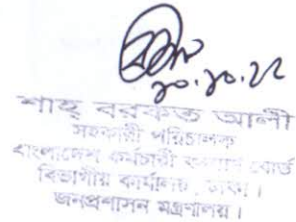 ১০.১০.২২
শাহ্ বরকত আলী
সহকারী পরিচালক
বাংলাদেশ কর্মচারী কল্যাণ বোর্ড
বিভাগীয় কার্যালয়, ঢাকা।
জনপ্রশাসন মন্ত্রণালয়।